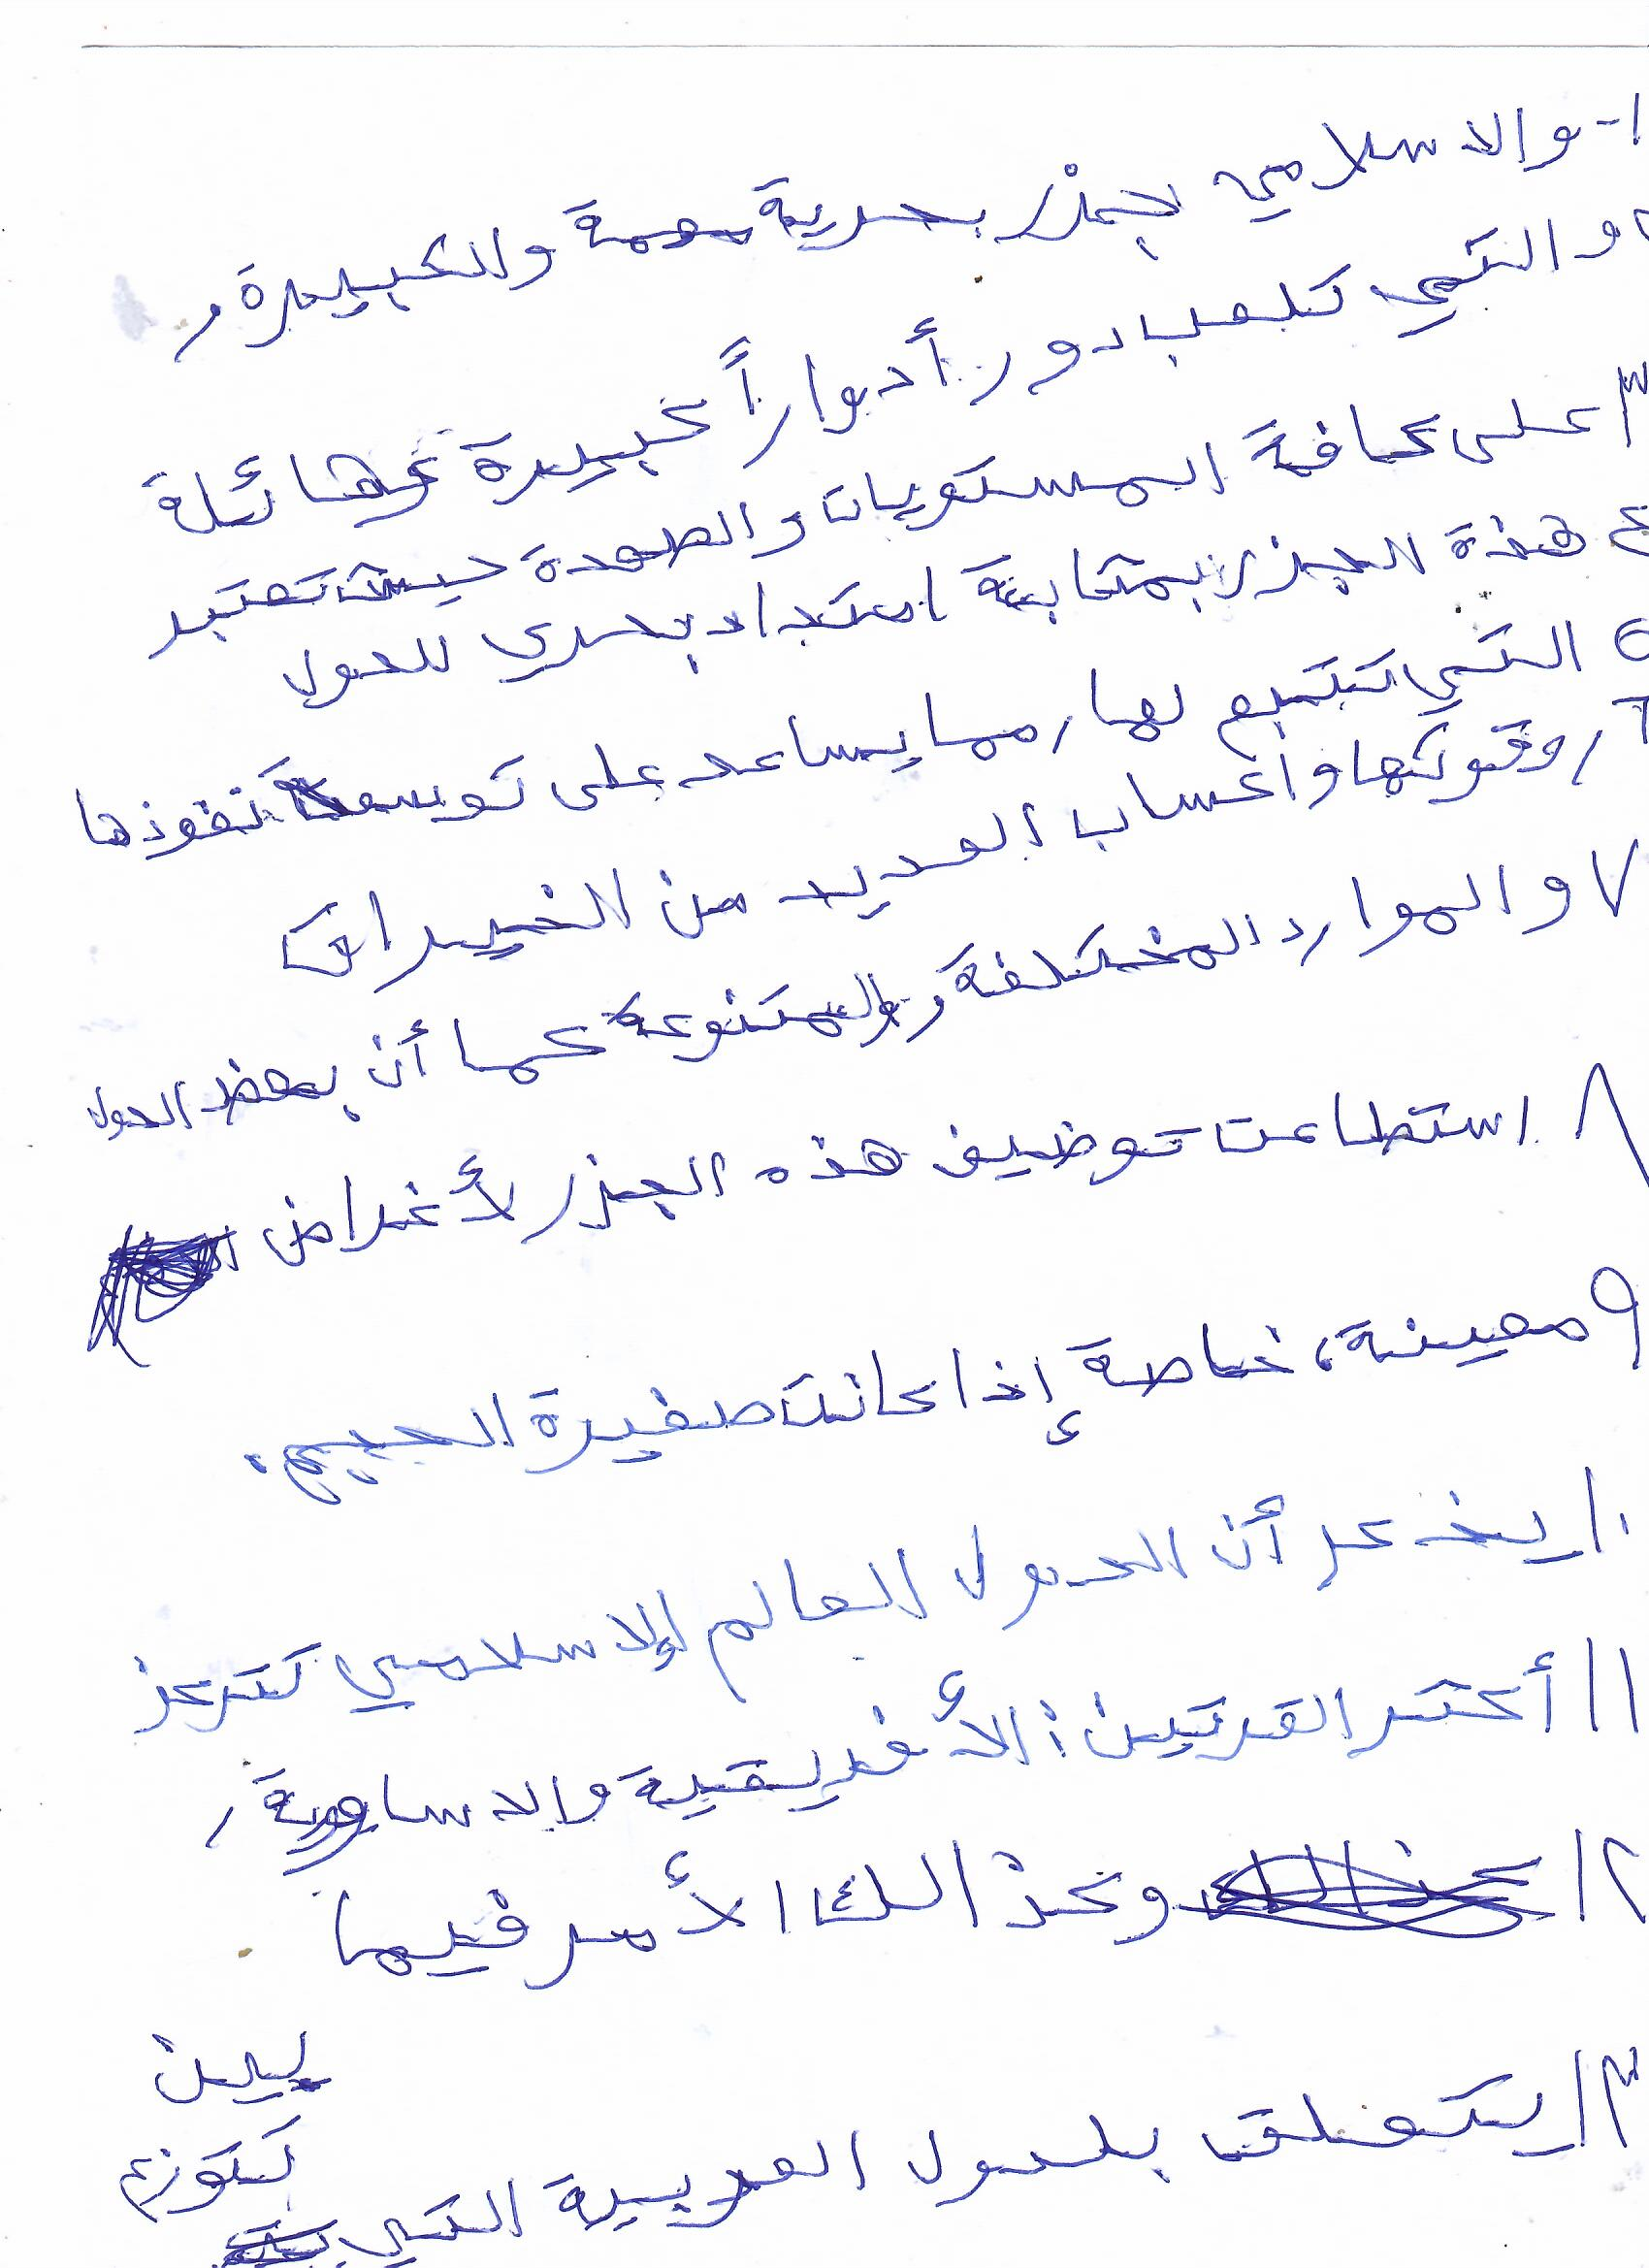 ١- والاسلامي بجزر بحرية مهمة والكبيرة,
٢ والتي تلعب دور أدواراً كبيرة وهائلة
٣ على كافة المستويات والصعدة حيث تعتبر
٤ هذة الجزر بمثابة امتداد بحري للدول
٥ التي تتبع لها, مما يساعد على توسعة نفوذها
٦ وقوتها واكساب العديد من الخيرات
٧ والموارد المختلفة والمتنوعة كما أن بعض الدول
٨ استطاعت توضيف هذه الجزر لأغراض
٩ معينة، خاصة إذا كانت صغيرة الحجم.
١٠ يذكر أن الدول العالم الاسلامي تتركز
١١ أكثر القرتين: الأفريقية والاساوية,
١٢ وكذالك الأمر فيما
١٣ يتعلق بلدول العربية التي
تتوزع
بين